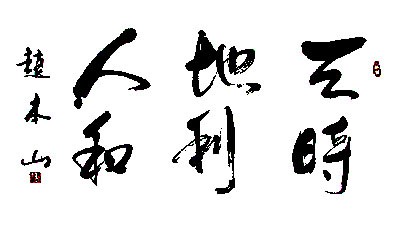 天時
地利
人和
趙木山